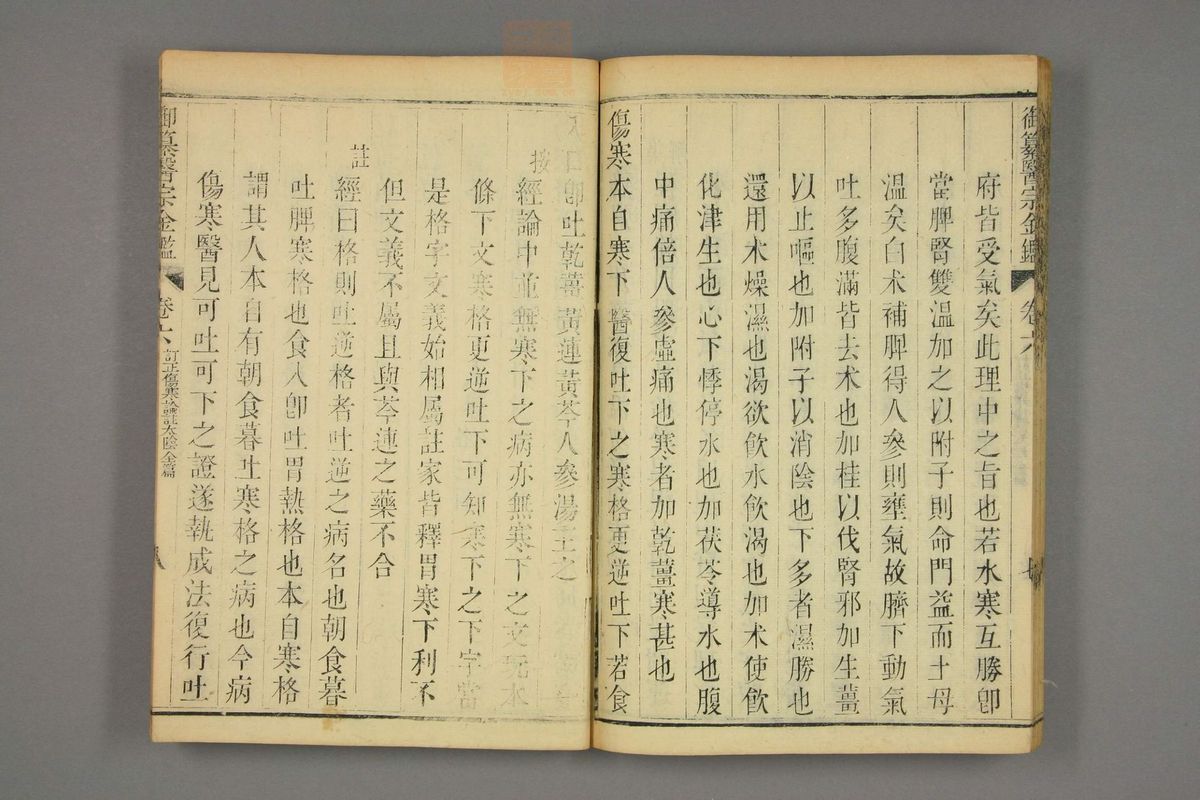 御纂醫宗金鑑 卷六
府皆受氣矣此理中之旨也若水寒互勝卽
當脾腎雙溫加之以附子則命門益而土母
溫矣白朮補脾得人參則壅氣故臍下動氣
吐多腹滿皆去朮也加桂以伐腎邪加生薑
以止嘔也加附子以消陰也下多者濕勝也
還用朮燥濕也渴欲飮水飮渴也加朮使飮
化津生也心下悸停水也加茯苓導水也腹
中痛倍人參虛痛也寒者加乾薑寒甚也
傷寒本自寒下醫復吐下之寒格更逆吐下若食
入口卽吐乾薑黃連黃芩人參湯主之
按經論中並無寒下之病亦無寒下之文玩本
條下文寒格更逆吐下可知寒下之下字當
是格字文義始相屬註家皆釋胃寒下利不
但文義不屬且與芩連之藥不合
註經曰格則吐逆格者吐逆之病名也朝食暮
吐脾寒格也食入卽吐胃熱格也本自寒格
謂其人本自有朝食暮吐寒格之病也今病
傷寒醫見可吐可下之證遂執成法復行吐
御纂醫宗金鑑 卷六 訂正傷寒論註太陰全篇